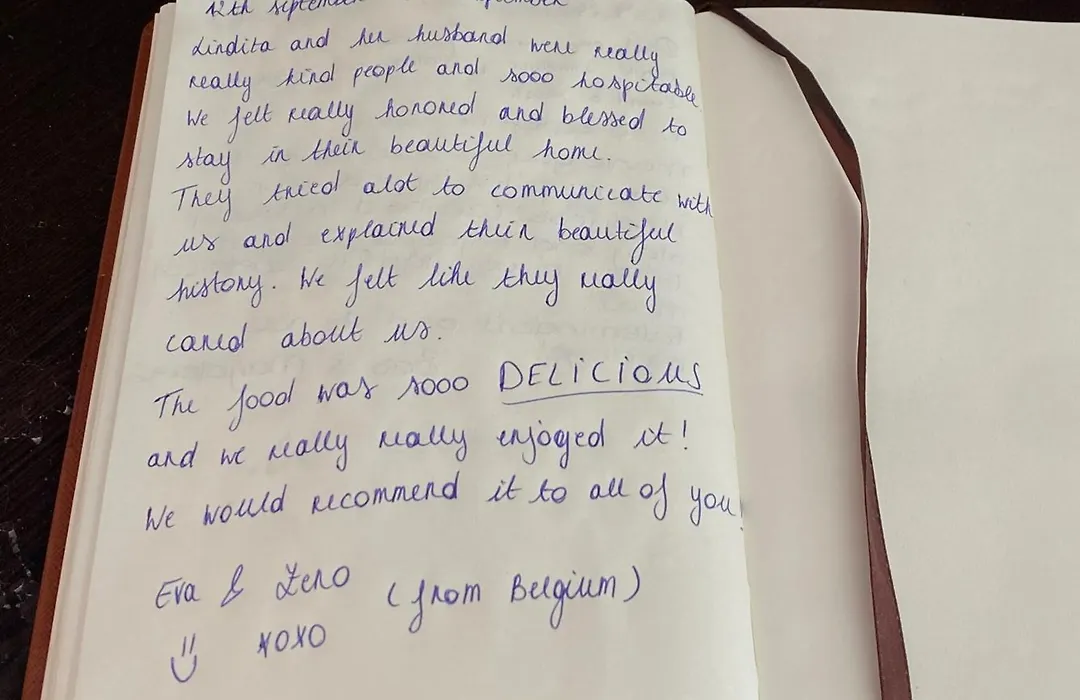 12th september september
Lindita and her husband were really
really kind people and sooo hospitable
We felt really honored and blessed to
stay in their beautiful home.
They tried alot to communicate with
us and explained their beautiful
history. We felt like they really
cared about us.
The food was sooo DELICIOUS
and we really really enjoyed it!
We would recommend it to all of you!
Eva & Zeno (from Belgium)
XOXO